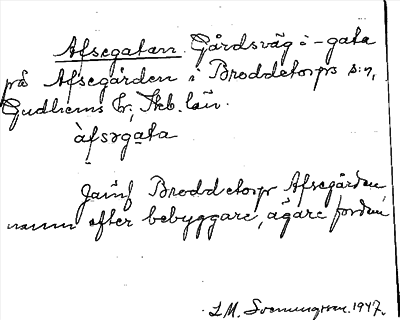 Afsegatan. Gårdsväg o -gata
på Afsegården i Broddetorps s:n,
Gudhems hr, Skb. län.
àfsəgata
Jämf Broddetorps Afsegården,
namn efter bebyggare, ägare fordom
L M. Svenungsson. 1947.